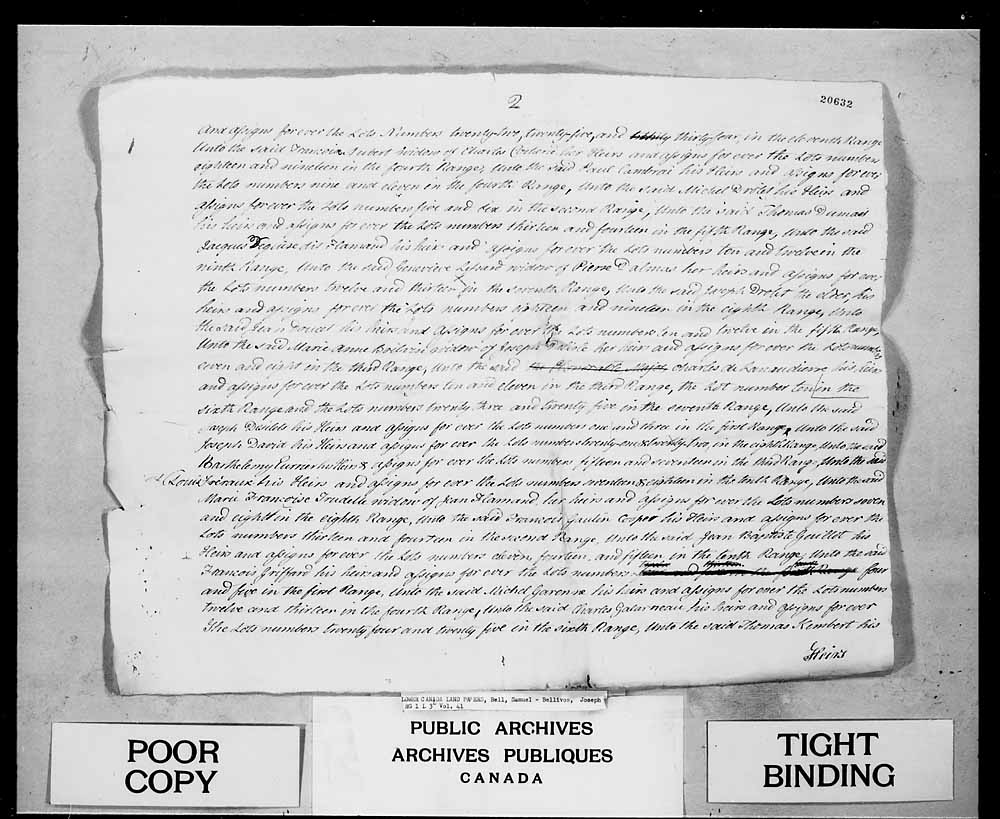 2
20632
and assigns for ever the Lots Numbers twenty-two, twenty-five, and thirty four, in the eleventh Range
Unto the said Francoise Aubert widow of Charles her Heirs and assigns for ever the Lots numbers
eighteen and nineteen in the fourth Range, Unto the said Paul Cambrai his Heirs and assigns for ever
the Lots numbers nine and eleven in the fourth Range, Unto the said Michel Drolet his Heirs and
assigns for ever the Lots numbers five and six in the second Range, Unto the said Thomas Dumas
his heirs and assigns for ever the Lots numbers thirteen and fourteen in the fifth Range, Unto the said
Jacques Deguise dit Flamand his heirs and assigns for ever the Lots numbers ten and twelve in the
ninth Range, Unto the said Genevieve Lessard widow of Pierre Dalmas her heirs and assigns for ever
the Lots numbers twelve and thirteen in the seventh Range, Unto the said Joseph Drolet the elder, his
heirs and assigns for ever the Lots numbers eighteen and nineteen in the eighth Range, Unto
the said his heirs and assigns for ever the Lots numbers ten and twelve in the fifth Range,
Unto the said Marie Anne widow of Joseph her heirs and assigns for ever the Lots numbers
seven and eight in the third Range, Unto the said the Honorable Major Charles de Lanaudierre his heirs
and assigns for ever the Lots numbers ten and eleven in the third Range, the Lot number ten in the
sixth Range and the Lots numbers twenty three and twenty five in the seventh Range, Unto the said
Joseph his Heirs and assigns for ever the Lots numbers one and three in the first Range, Unto the said
Joseph David his Heirs and assigns for ever the Lots numbers twenty-one & twenty two, in the eighth Range Unto the said
Barthelemy his Heirs & assigns for ever the Lots numbers, fifteen and seventeen in the third Range, Unto the said
Louis his Heirs and assigns for ever the Lots numbers seventeen & eighteen in the tenth Range, Unto the said
Marie Francoise Trudell widow of Jean Flamand, her heirs and assigns for ever the Lots numbers seven
and eight in the eighth Range, Unto the said Francois Gaulin Cooper his Heirs and assigns for ever the
Lots numbers thirteen and fourteen in the second Range, Unto the said Jean Baptiste Guillot his
Heirs and assigns for ever the Lots numbers eleven, fourteen, and fifteen in the tenth Range, Unto the said
Francois Griffard his heirs and assigns for ever the Lots numbers four
and five in the first Range, Unto the said Michel Garenne his heirs and assigns for ever the Lots numbers
twelve and thirteen in the fourth Range, Unto the said Charles Galarneau his heirs and assigns for ever
The Lots numbers twenty four and twenty five in the sixth Range, Unto the said Thomas Hembert his
Heirs
LOWER CANADA LAND PAPERS, Bell, Samuel - Bellivos, Joseph
RG 1 L 3" Vol. 41
POOR
COPY
PUBLIC ARCHIVES
ARCHIVES PUBLIQUES
CANADA
TIGHT
BINDING